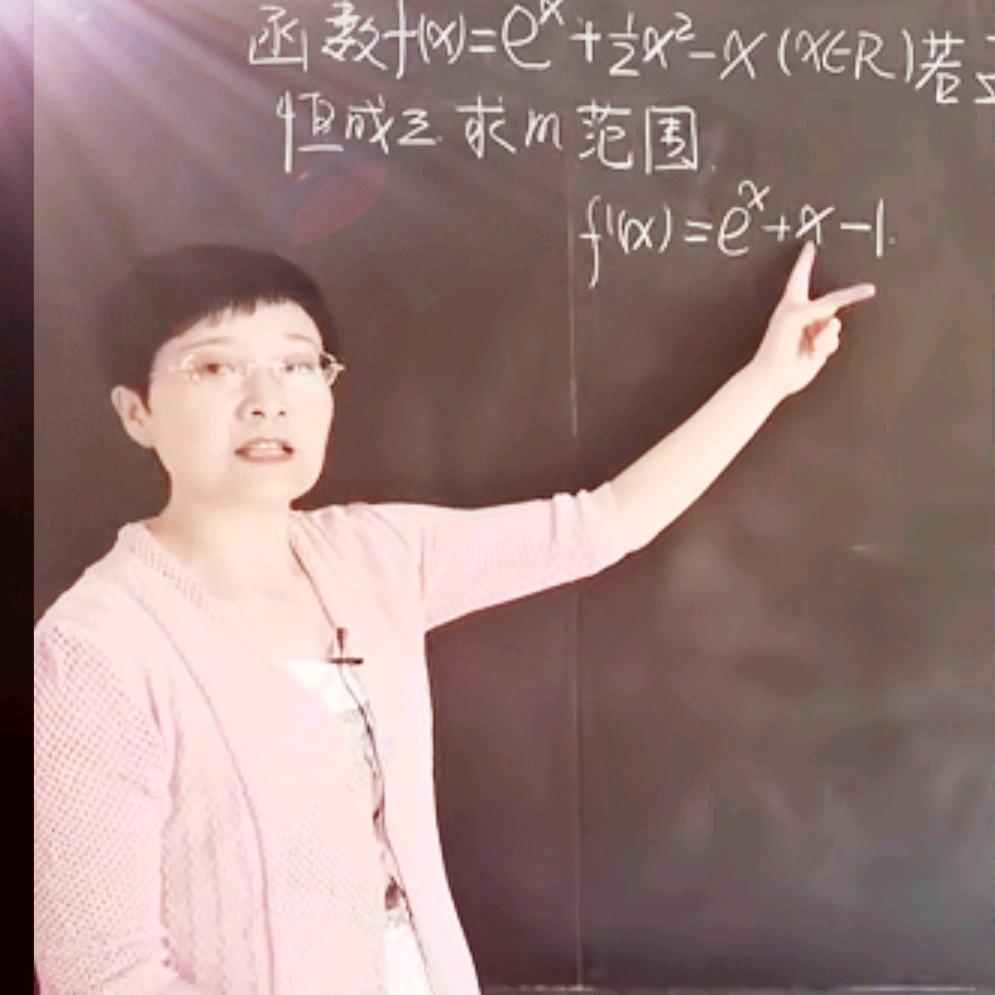 函数f(x)=eˣ+½x²-x(x∈R)若
恒成立.求m范围.
f'(x)=eˣ+x-1.